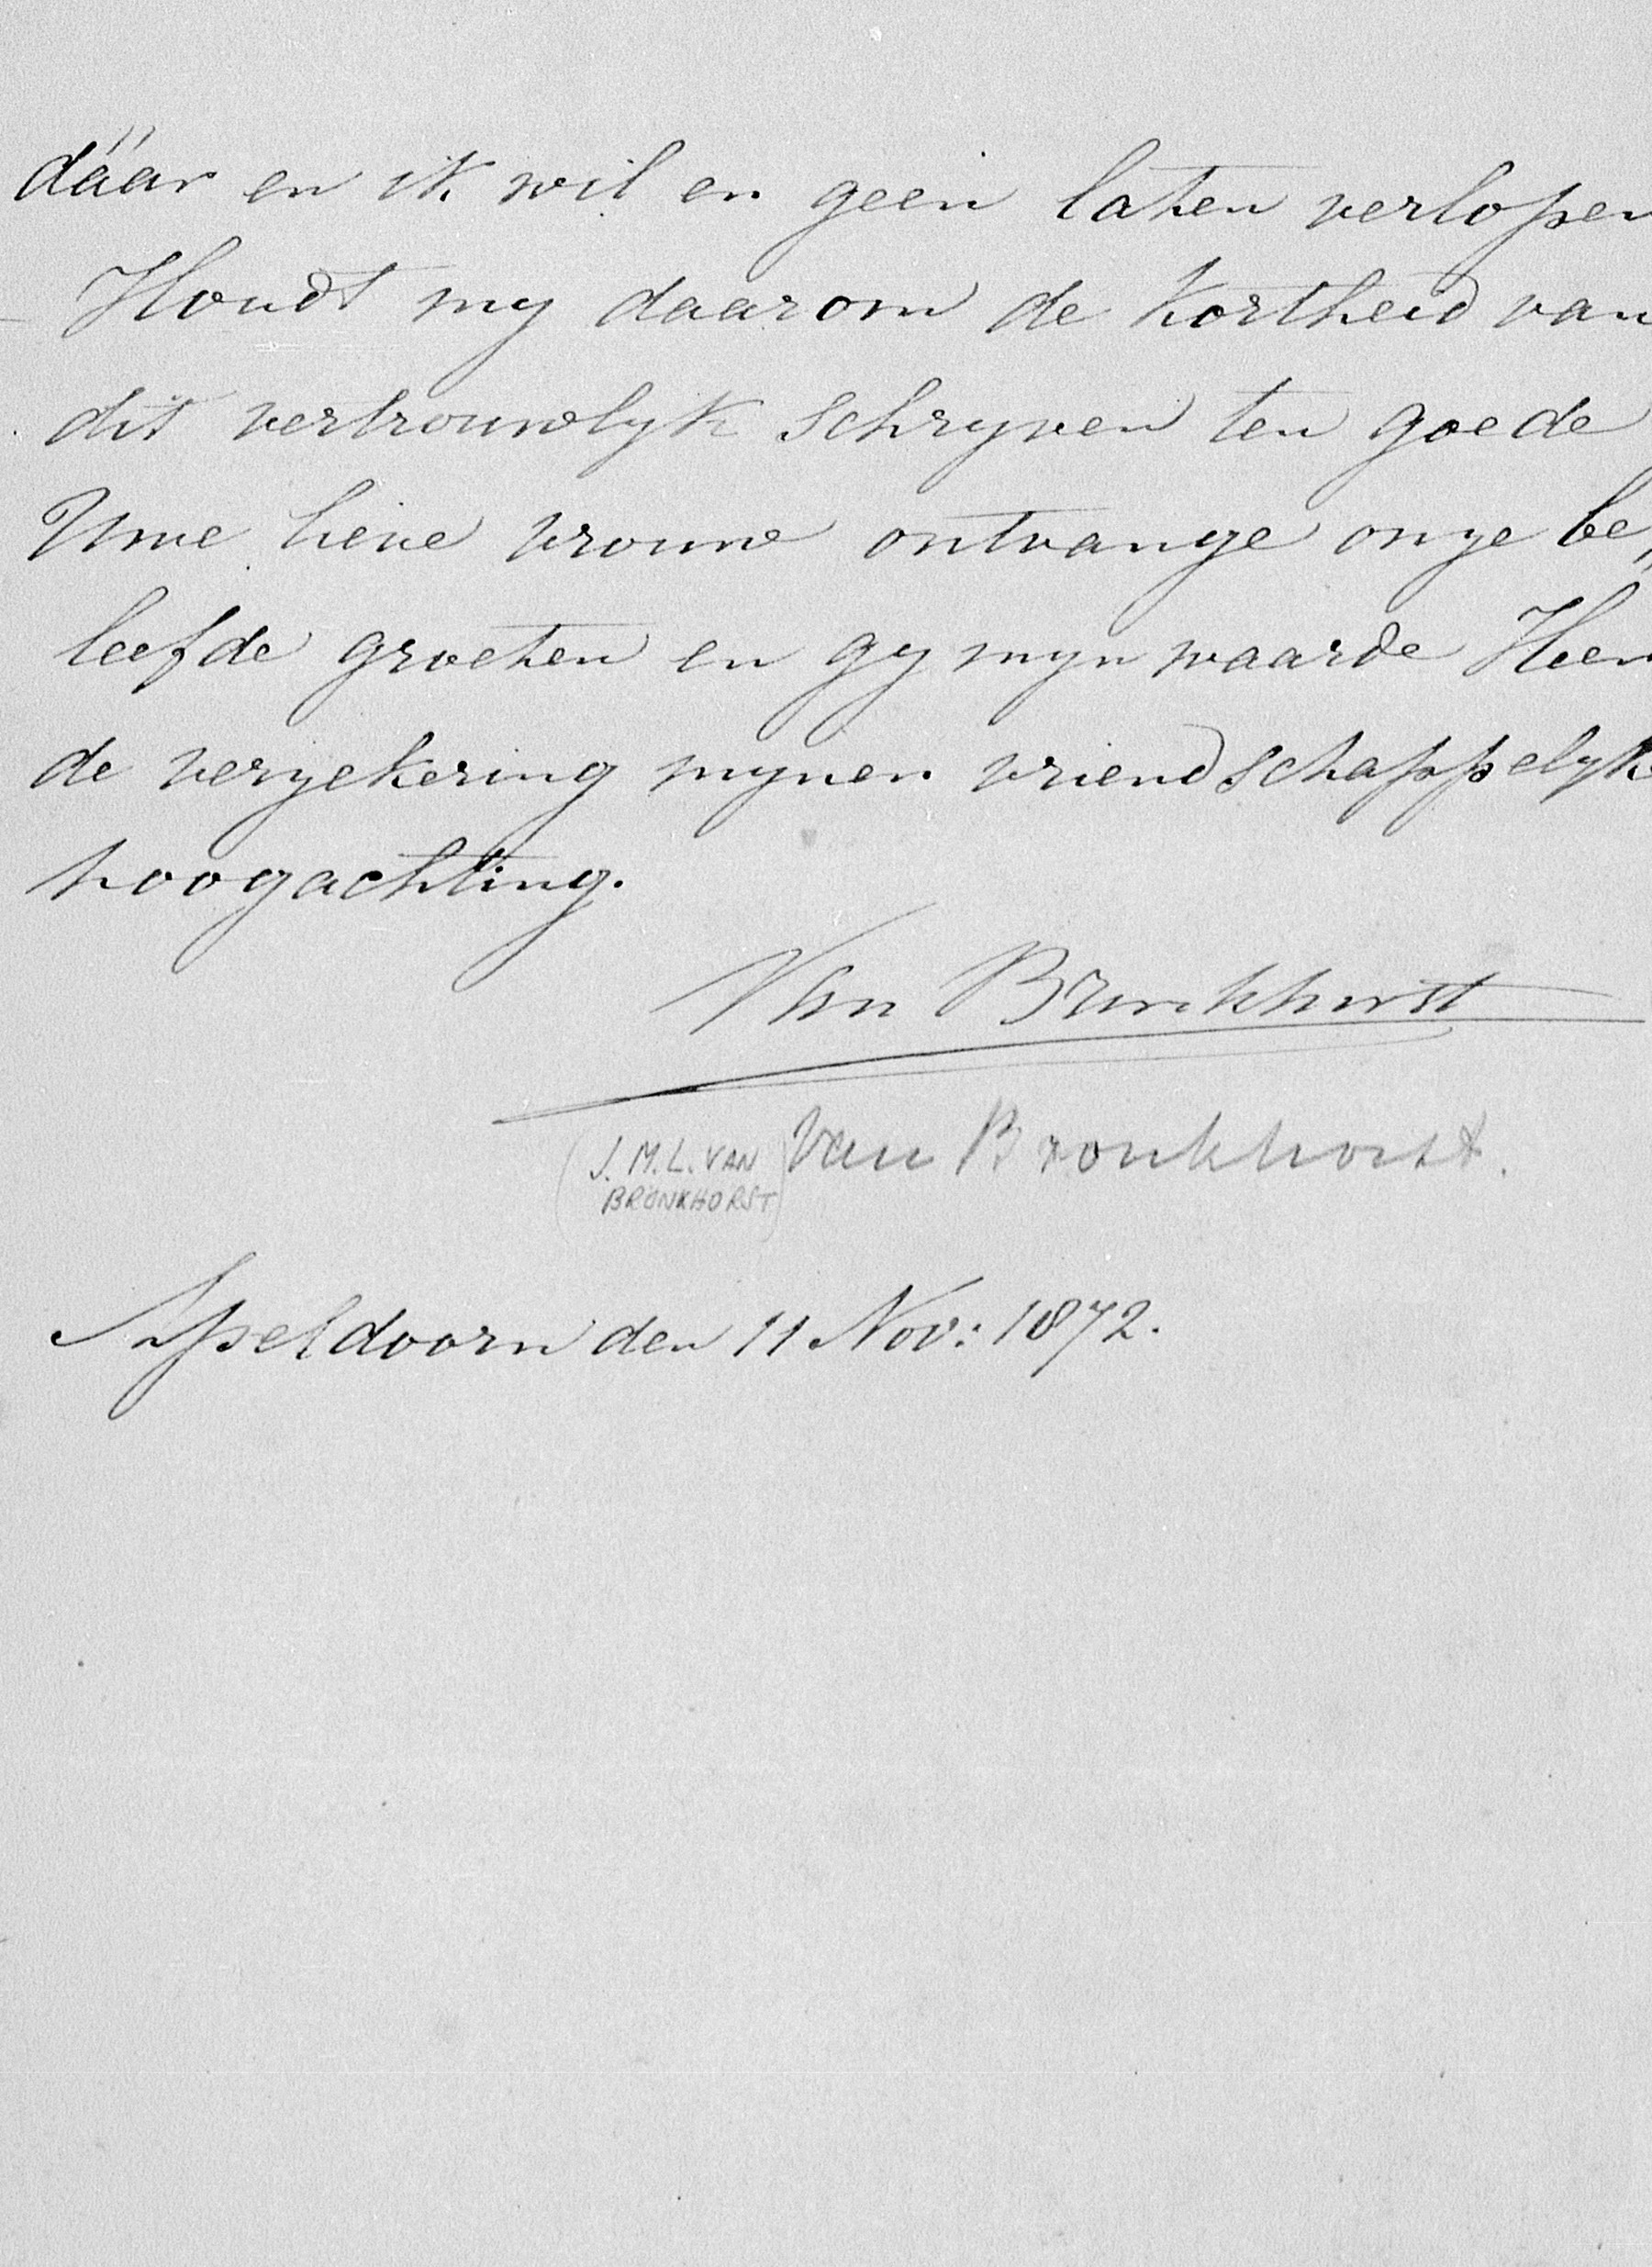 dáár en ik wil er geen laten verlopen
Houdt my daarom de kortheid van
dit vertrouwlyk schryven ten goede
Uwe lieve vrouw ontvange onze be„
leefde groeten en gy myn waarde Heer
de verzekering mynen vriendschappelyk
hoogachting.
Van Bronkhorst
Van Bronkhorst.
(J. M. L. VAN
BRONKHORST)
Apeldoorn den 11 Nov: 1872.